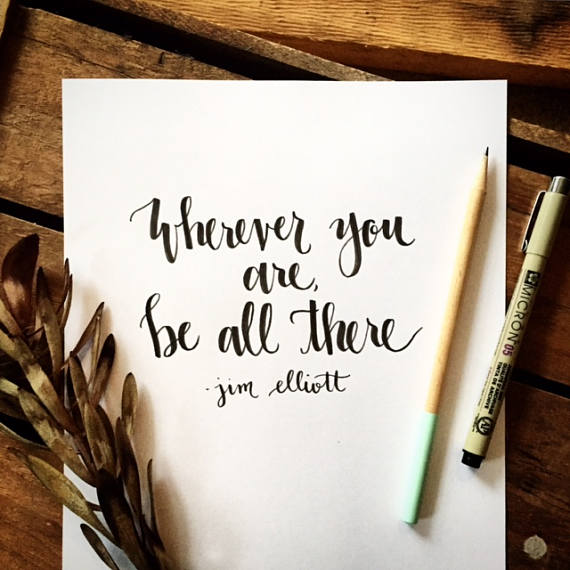 Wherever you
are,
be all there
-jim elliott
MICRON 05